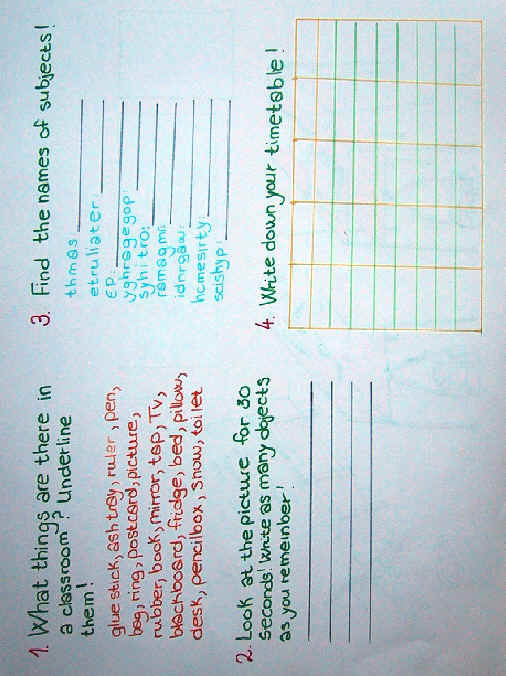 1. What things are there in
a classroom? Underline
them!
glue stick, ash tray, ruler, pen,
bag, ring, postcard, picture,
rubber, book, mirror, tap, TV,
blackboard, fridge, bed, pillow,
desk, pencilbox, snow, toilet
2. Look at the picture for 30
seconds! Write as many objects
as you remember!
3. Find the names of subjects!
thmas
etruliater:
EP:
yghragegop:
syhitro:
ramagmr:
idnrgaw:
hcmesirty:
scishyp:
4. Write down your timetable!